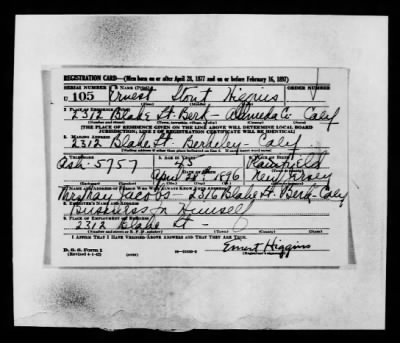 REGISTRATION CARD—(Men born on or after April 28, 1877 and on or before February 16, 1897)
SERIAL NUMBER 1. NAME (Print) ORDER NUMBER
U 105 Ernest Stout Higgins
2. PLACE OF RESIDENCE (Print)
2312 Blake St. Berk- Alameda Co. Calif
[THE PLACE OF RESIDENCE GIVEN ON THE LINE ABOVE WILL DETERMINE LOCAL BOARD
JURISDICTION; LINE 2 OF REGISTRATION CERTIFICATE WILL BE IDENTICAL]
3. MAILING ADDRESS
2312 Blake St. Berkeley Calif
4. TELEPHONE 5. AGE IN YEARS 6. PLACE OF BIRTH
Ash-5757 45 Plainfield
April 28th 1896 New Jersey
7. NAME AND ADDRESS OF PERSON WHO WILL ALWAYS KNOW YOUR ADDRESS
Jacobs 2316 Blake St. Berk-Calif
8. EMPLOYER'S NAME AND ADDRESS
Business for Himself
9. PLACE OF EMPLOYMENT OR BUSINESS
2312 Blake St -
I AFFIRM THAT I HAVE VERIFIED ABOVE ANSWERS AND THAT THEY ARE TRUE.
D. S. S. Form 1
(Revised 4-1-42)
Ernest Higgins